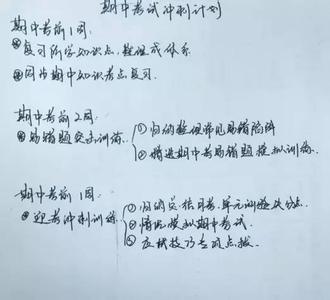 期中考试冲刺计划
期中考前1周:
复习所学知识点,整理成体系
同步期中知识考点复习.
期中考前2周:
易错题突击训练
①归纳整理常见易错陷阱
②精进期中考易错题模拟训练.
期中考前1周:
迎考冲刺训练
①归纳总结月考、单元训练失分点.
②情况模拟期中考试.
③应试技巧专项点拨.